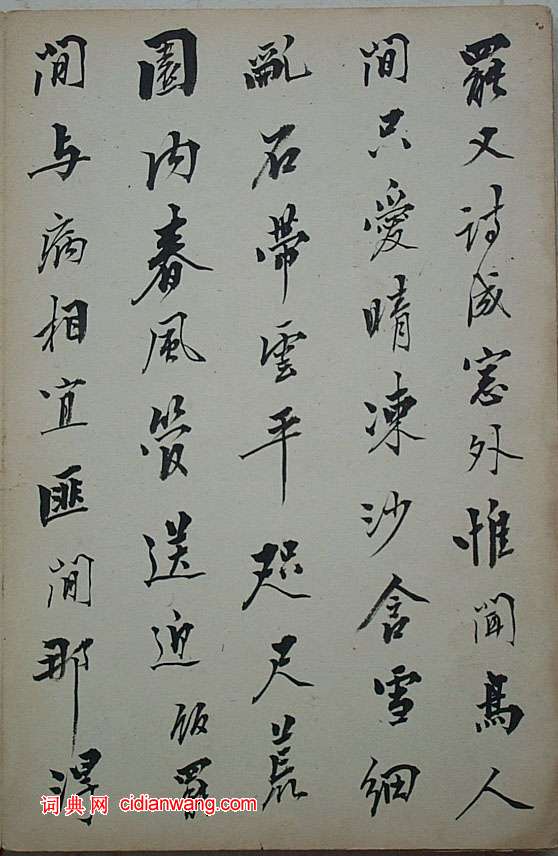 罷又詩成窓外惟聞鳥人
間只愛晴凍沙含雪細
亂石帶雲平咫尺荒
園内春風管送迎
間与病相宜匪間那得
词典网 cidianwang.com